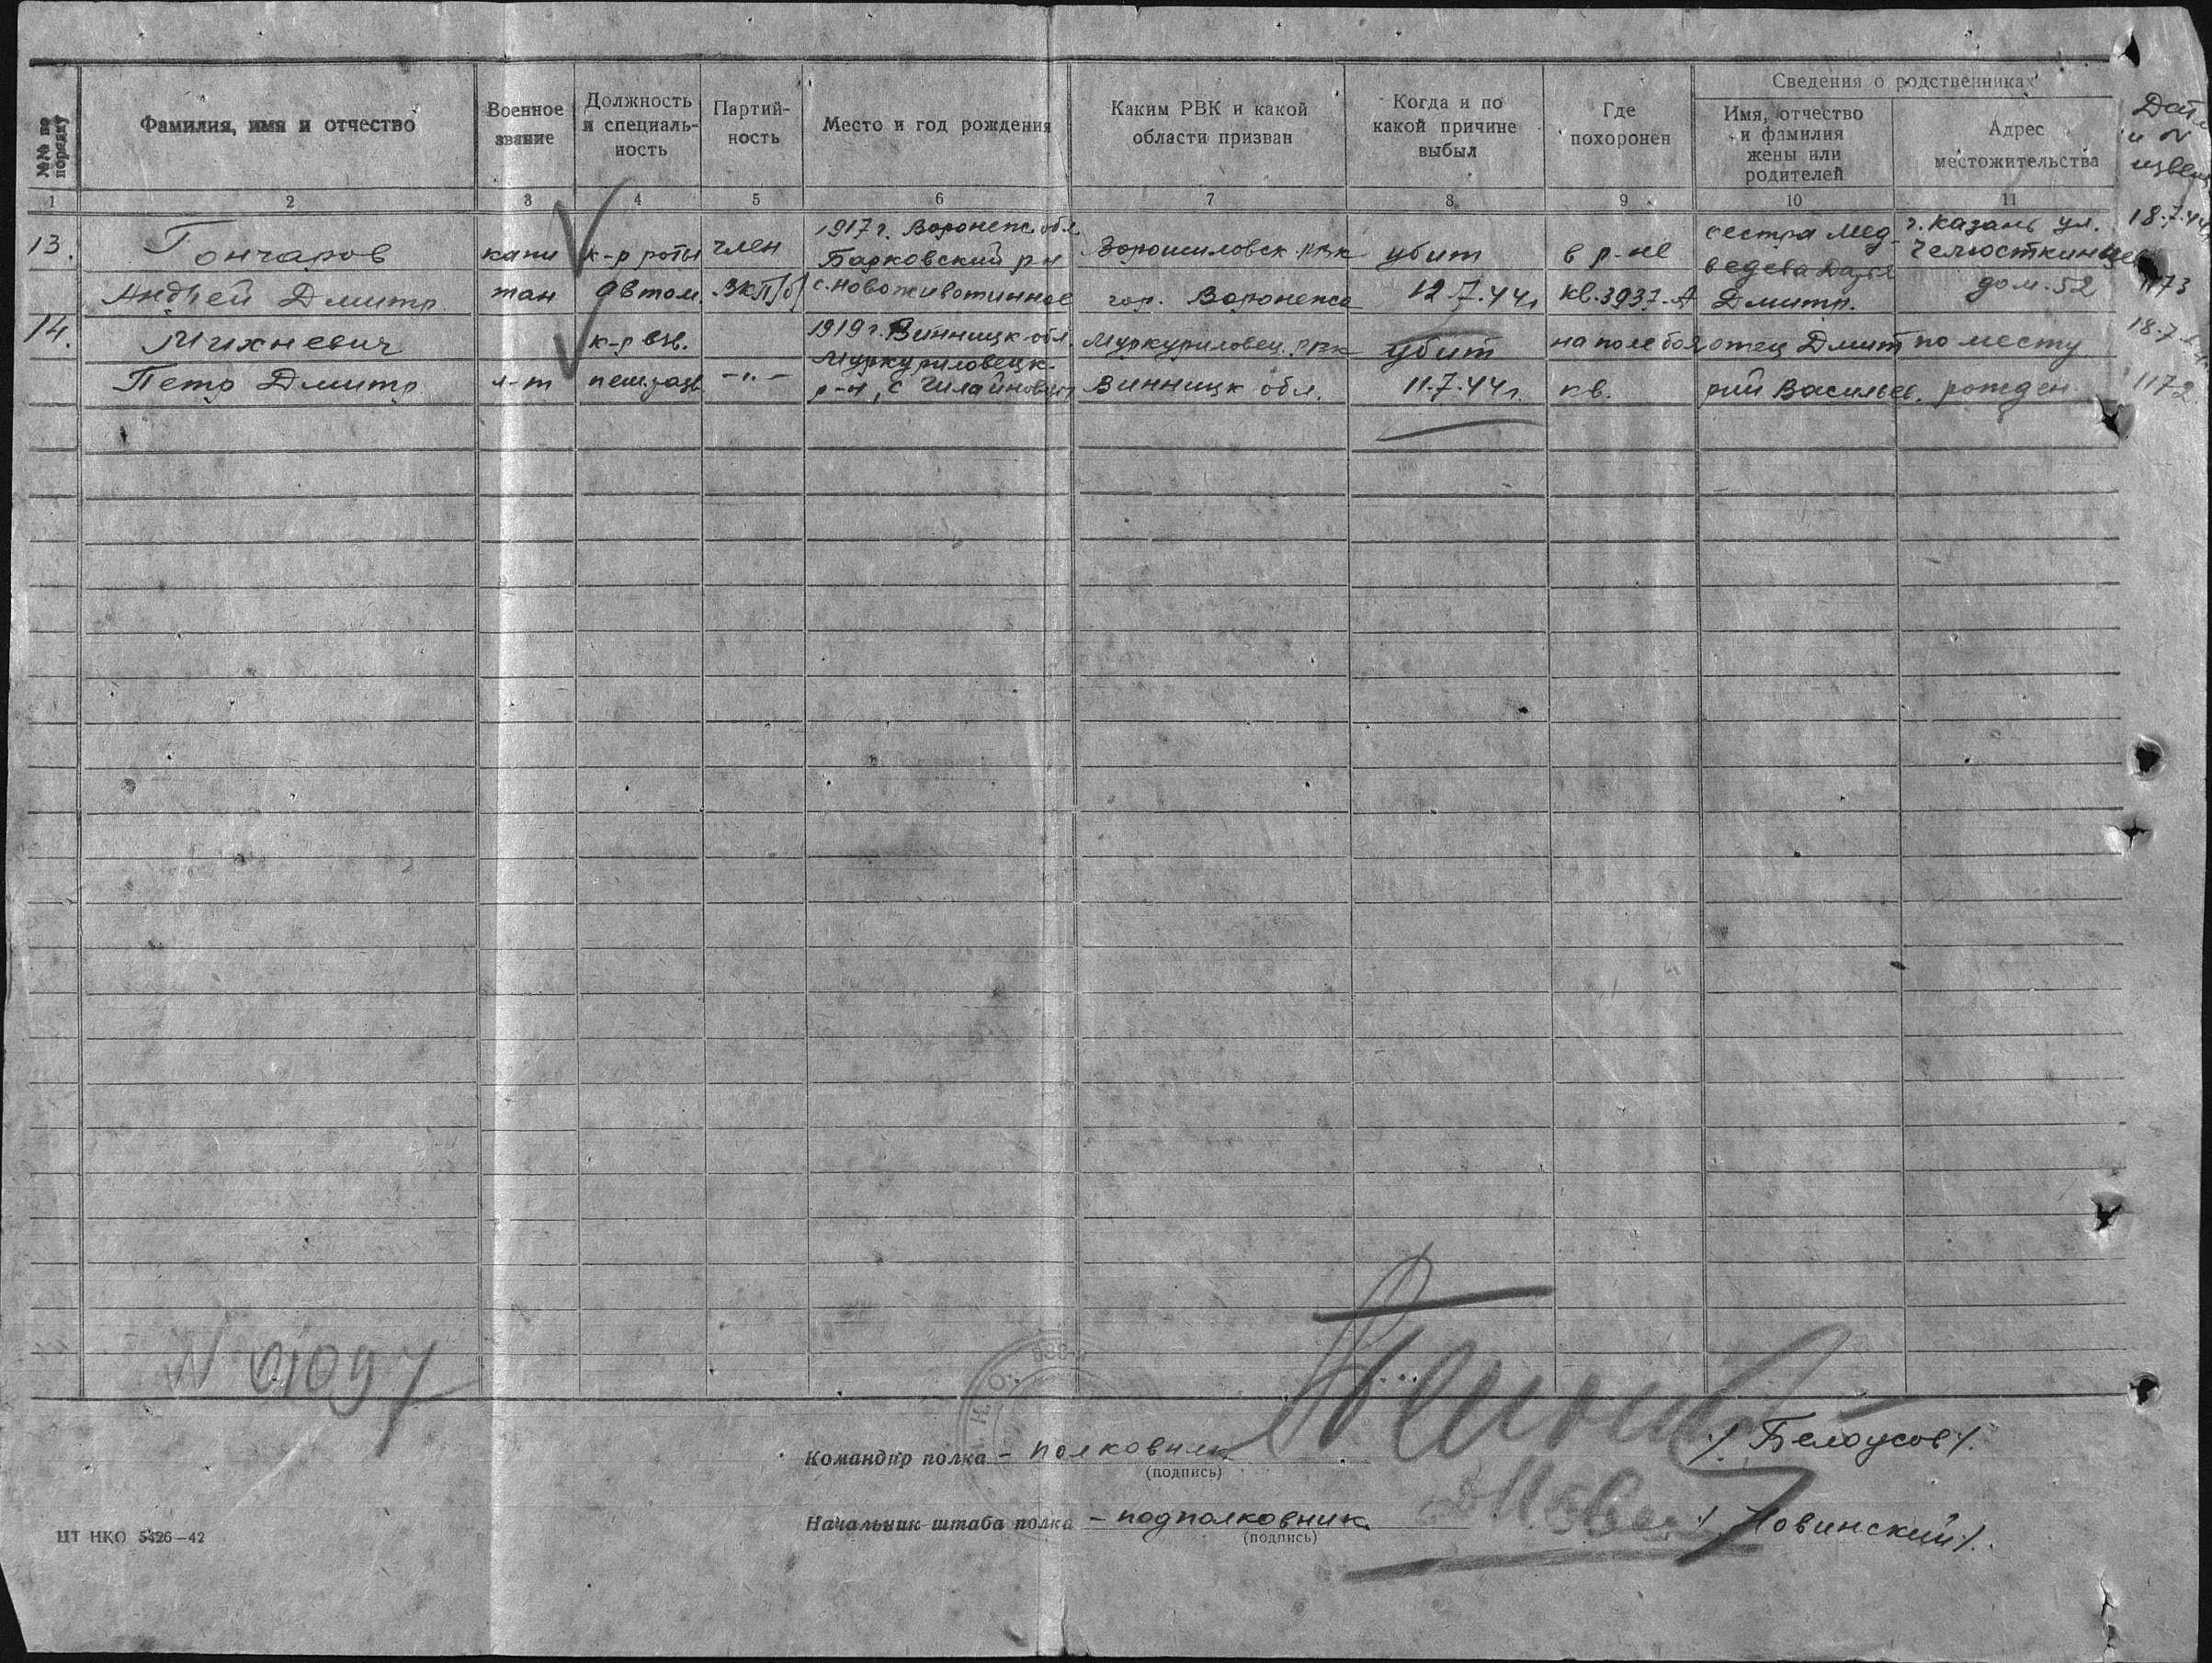 №№ по порядку
Фамилия, имя и отчество
Военное звание
Должность и специаль-ность
Партий-ность
Место и год рождения
Каким РВК и какой области призван
Когда и по какой причине выбыл
Где похоронен
Сведения о родственниках
Имя, отчество и фамилия жены или родителей
Адрес местожительства
1 2 3 4 5 6 7 8 9 10 11
13. Гончаров Андрей Дмитр.
капитан
к-р роты автом.
член ВКП/б/
1917 г. Воронеж. обл
р-н
с. Новоживотинное
Ворошиловск. РВК
гор. Воронежа
убит
12.7.44г
в р-не
кв. 3937-А
сестра Медведева Дарья Дмитр.
г. Казань ул.
Челюсткинцев
дом. 52
18.7.44
1173
14. Михневич
Петр Дмитр.
л-т
к-р взв.
пеш. разв
-"-
1919 г. Винницк. обл.
Муркуриловецк.
р-н, с
Муркуриловец. РВК
Винницк обл.
убит
11.7.44г.
на поле боя
кв.
отец Дмитрий Васильев.
по месту рожден.
18.7
1172
Командир полка - полковник
/Белоусов/.
(подпись)
Начальник штаба полка - подполковник
/Новинский/.
(подпись)
ЦТ НКО 5426—42